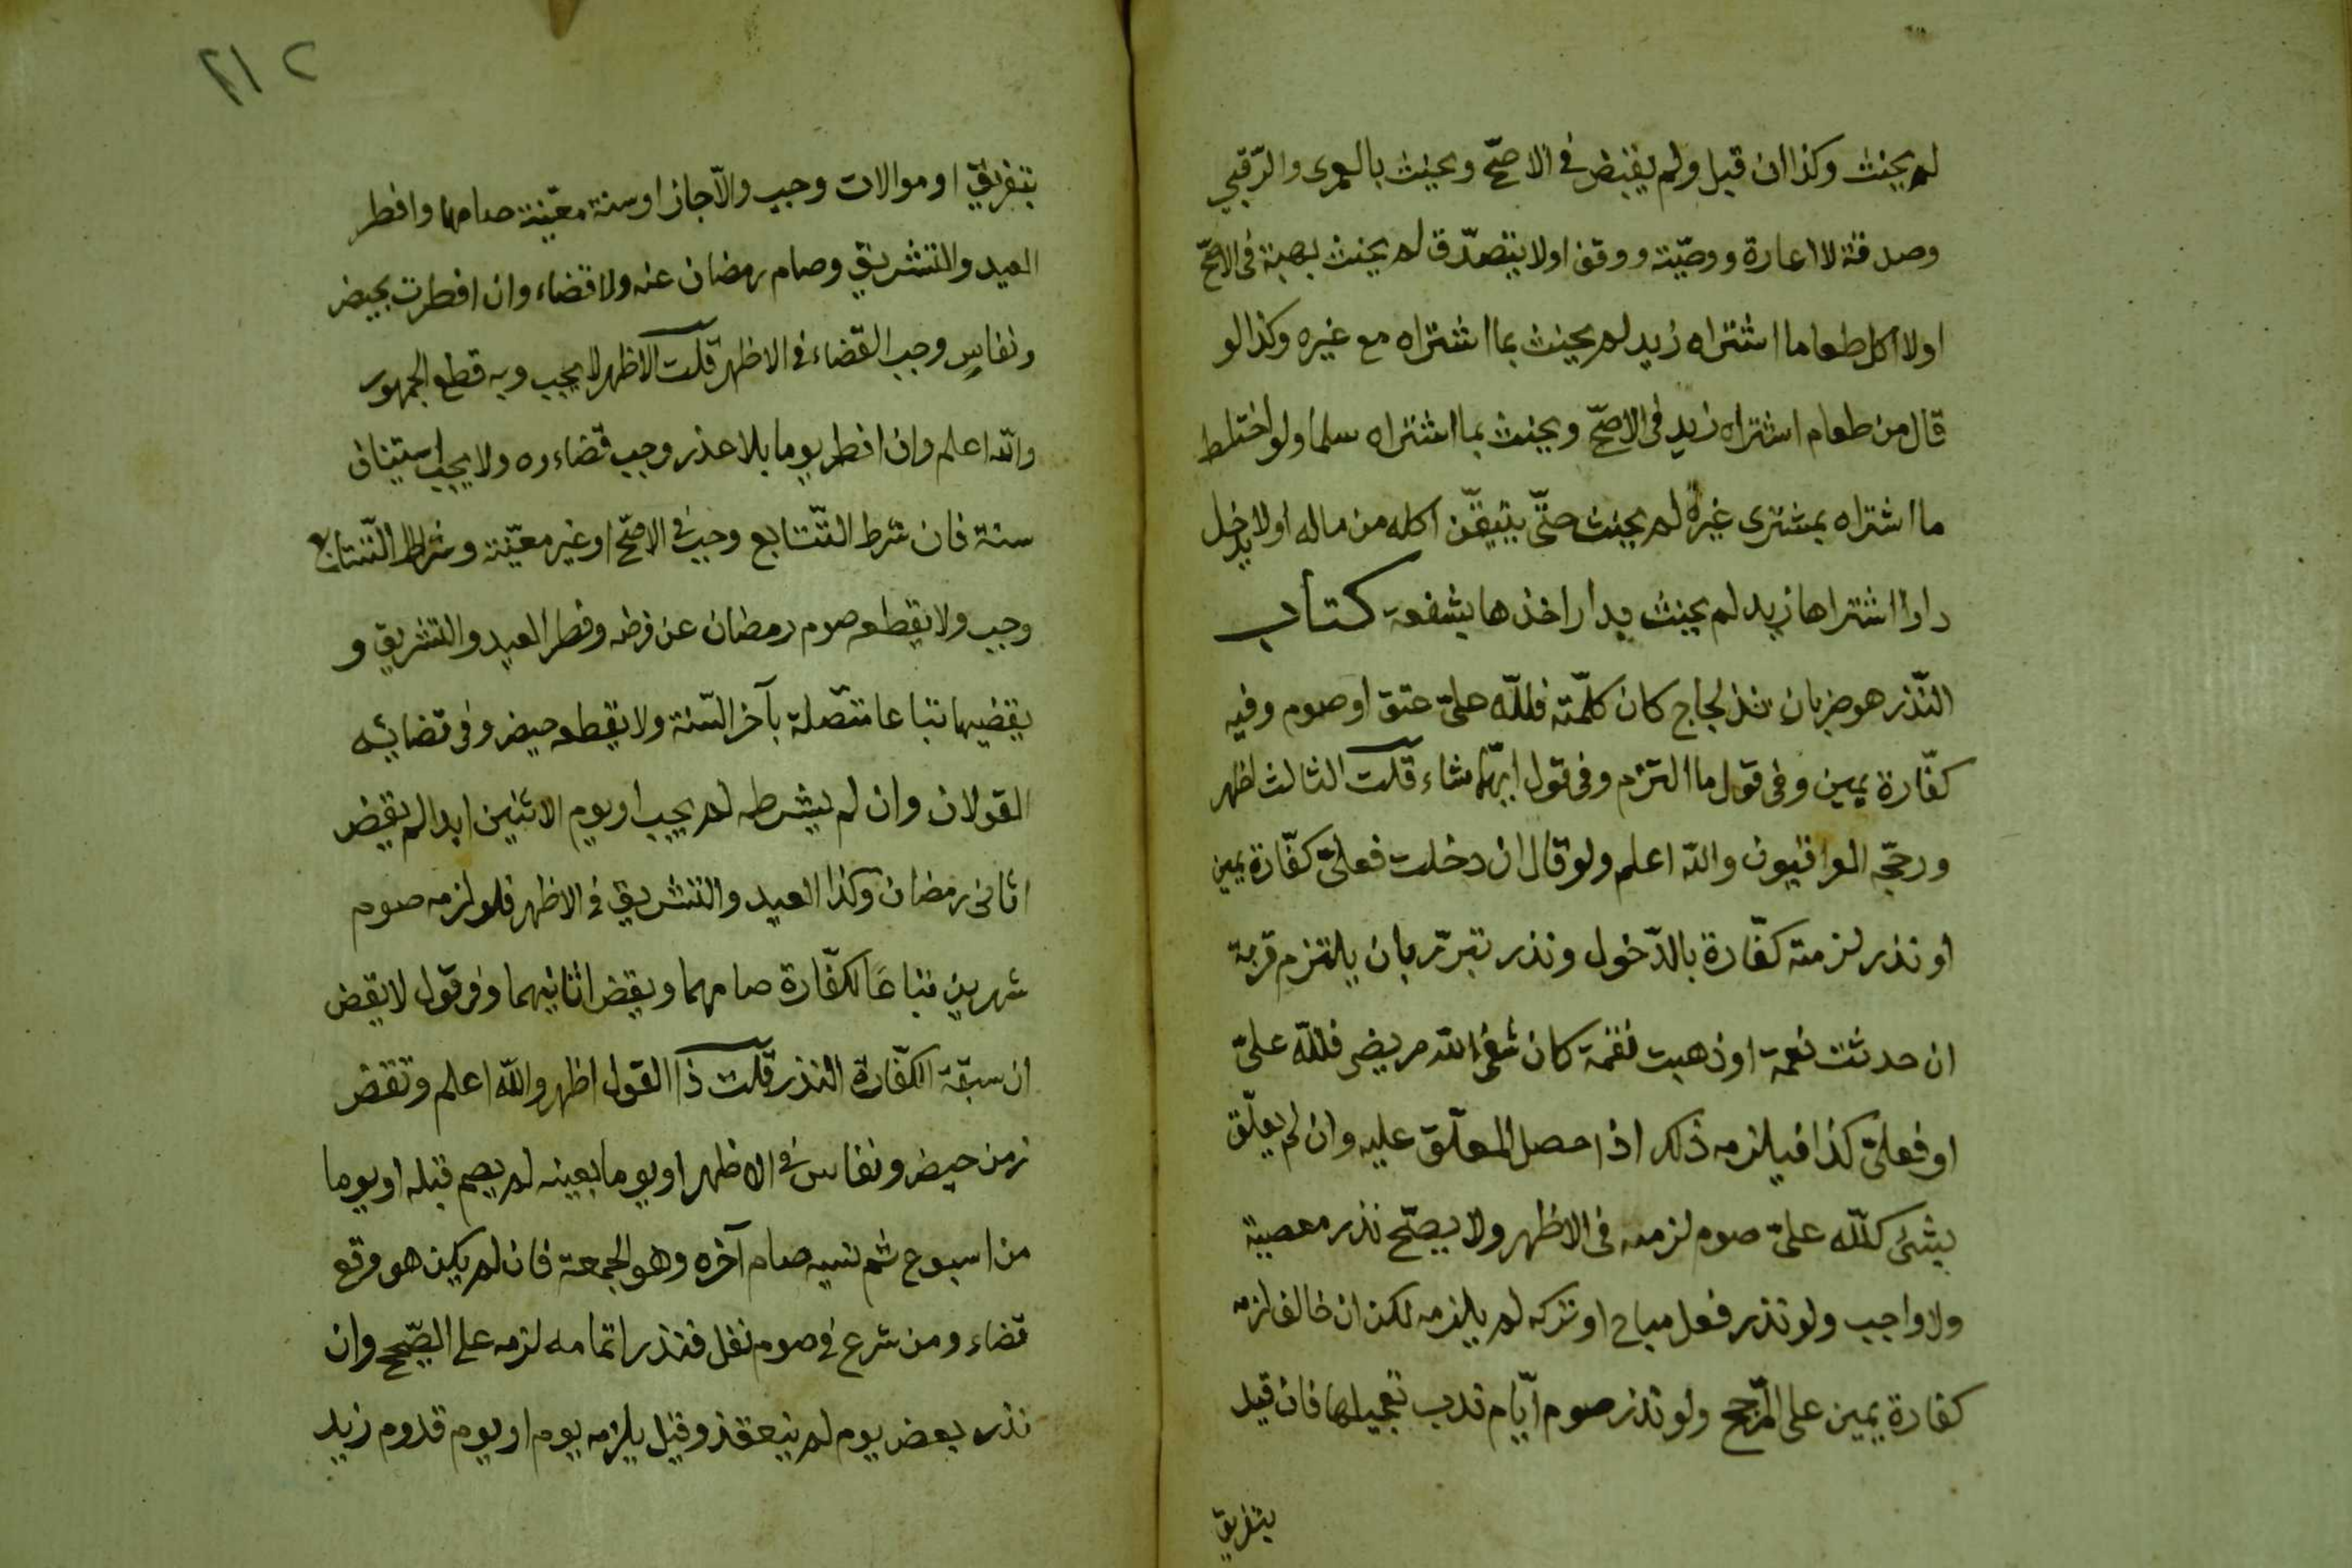 لم يحنث وكذا ان قبل ولم يقبض في الاصحّ ويحنث بالعمرى والرّقبى
وصدقة لا اعارة ووصّية ووقف اولا يتصدّق لم يحنث بهبة فى الاصحّ
اولا اكل طعاما اشتراه زيد لم يحنث بما اشتراه مع غيره وكذا لو
قال من طعام اشتراه زيد فى الاصحّ ويحنث بما اشتراه سلما ولو اختلط
ما اشتراه بمشترى غيره لم يحنث حتّى يتيقّن اكله من ماله اولا يدخل
دارا اشتراها زيد لم يحنث بدار اخذها بشفعة كتاب
النّذر هو ضربان نذر لجاج كان كلّمته فللّه علىّ عتق او صوم وفيه
كفّارة يمين وفى قول ما التزم وفى قول ايّهما شاء قلت الثالث اظهر
ورجّحه العراقيون والله اعلم ولو قال ان دخلت فعلىّ كفّارة يمين
او نذر لزمته كفّارة بالدّخول ونذر تبرّر بان يلتزم قربة
ان حدثت نعمة او ذهبت نقمة كان شفى الله مريضى فللّه علىّ
او فعلىّ كذا فيلزمه ذلك اذا حصل المعلّق عليه وان لم يعلّق
بشئ كللّه علىّ صوم لزمه فى الاظهر ولا يصحّ نذر معصية
ولا واجب ولو نذر فعل مباح او تركه لم يلزمه لكن ان خالف لزمه
كفارة يمين على المرّجح ولو نذر صوم ايّام ندب تعجيلها فان قيد
بتفريق
٢١٢
بتفريق او موالات وجب والّا جاز او سنة معيّنة صامها وافطر
العيد والتشريق وصام رمضان عنه ولا قضاء وان افطرت بحيض
ونفاسٍ وجب القضاء في الاظهر قلت الاظهر لا يجب وبه قطع الجمهور
والله اعلم وان افطر يوما بلا عذر وجب قضاءه ولا يجب استيناف
سنة فان شرط التّتابع وجب في الاصحّ او غير معيّنة وشرط التّتابع
وجب ولا يقطعه صوم رمضان عن فرضه وفطر العيد والتشريق و
يقضيها تباعا متّصلة بآخر السّنة ولا يقطعه حيض وفى قضائه
القولان وان لم يشرطه لم يجب او يوم الاثنين ابدا لم يقض
اثانى رمضان وكذا العيد والتشريق في الاظهر فلو لزمه صوم
شهرين تباعًا لكفّارة صامهما ويقض اثانيهما وفى قول لا يقض
ان سبقة الكفّارة النذر قلت ذا القول اظهر واللّه اعلم وتقض
زمن حيض ونفاس في الاظهر او يوما بعينه لم يصم قبله او يوما
من اسبوع ثم نسيه صام آخره وهو الجمعة فان لم يكن هو وقع
قضاء ومن شرع في صوم نفل فنذر اتمامه لزمه على الصّحيح وان
نذر بعض يوم لم ينعقد وقيل يلزمه يوم او يوم قدوم زيد